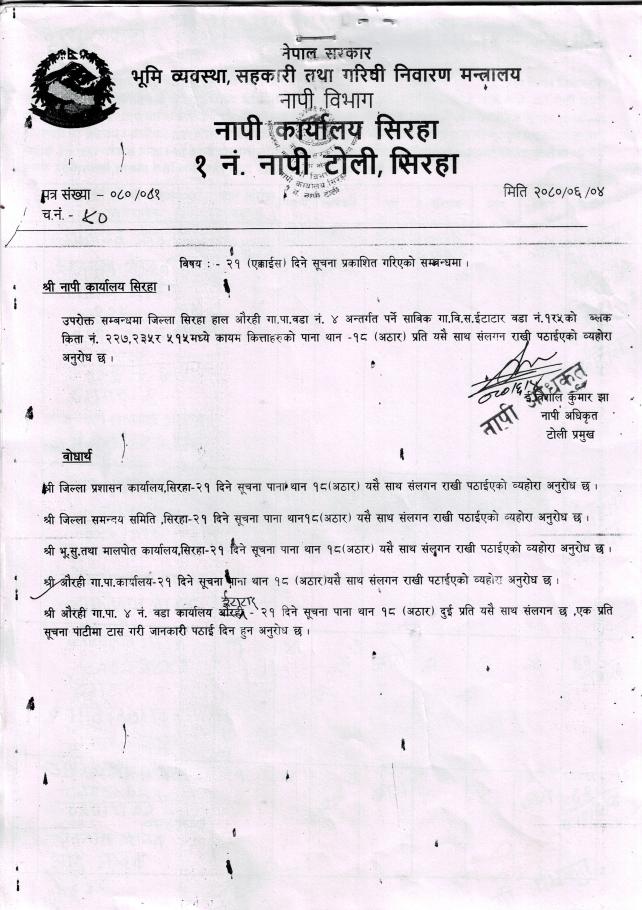 नेपाल सरकार
भूमि व्यवस्था, सहकारी तथा गरिवी निवारण मन्त्रालय
नापी विभाग
नापी कार्यालय सिरहा
१ नं. नापी टोली, सिरहा
पत्र संख्या – ०८०/०८१
मिति २०८०/०६/०४
च.नं. - ४०
विषय : - २१ (एक्काईस) दिने सूचना प्रकाशित गरिएको सम्बन्धमा ।
श्री नापी कार्यालय सिरहा ।
उपरोक्त सम्बन्धमा जिल्ला सिरहा हाल औरही गा.पा.वडा नं. ४ अन्तर्गत पर्ने साबिक गा.वि.स.ईटाटार वडा नं.१र५को ब्लक
किता नं. २२७,२३५र ५१५मध्ये कायम कित्ताहरुको पाना थान -१८ (अठार) प्रति यसै साथ संलगन राखी पठाईएको व्यहोरा
अनुरोध छ ।
नापी अधिकृत
ई.विशाल कुमार झा
नापी अधिकृत
टोली प्रमुख
वोधार्थ
श्री जिल्ला प्रशासन कार्यालय,सिरहा-२१ दिने सूचना पाना थान १८(अठार) यसै साथ संलगन राखी पठाईएको व्यहोरा अनुरोध छ ।
श्री जिल्ला समन्वय समिति ,सिरहा-२१ दिने सूचना पाना थान१८(अठार) यसै साथ संलगन राखी पठाईएको व्यहोरा अनुरोध छ ।
श्री भू.सु.तथा मालपोत कार्यालय,सिरहा-२१ दिने सूचना पाना थान १८(अठार) यसै साथ संलगन राखी पठाईएको व्यहोरा अनुरोध छ ।
श्री औरही गा.पा.कार्यालय-२१ दिने सूचना पाना थान १८ (अठार)यसै साथ संलगन राखी पठाईएको व्यहोरा अनुरोध छ ।
ईटाटार
श्री औरही गा.पा. ४ नं. वडा कार्यालय औरही - २१ दिने सूचना पाना थान १८ (अठार) दुई प्रति यसै साथ संलगन छ ,एक प्रति
सूचना पाटीमा टास गरी जानकारी पठाई दिन हुन अनुरोध छ ।